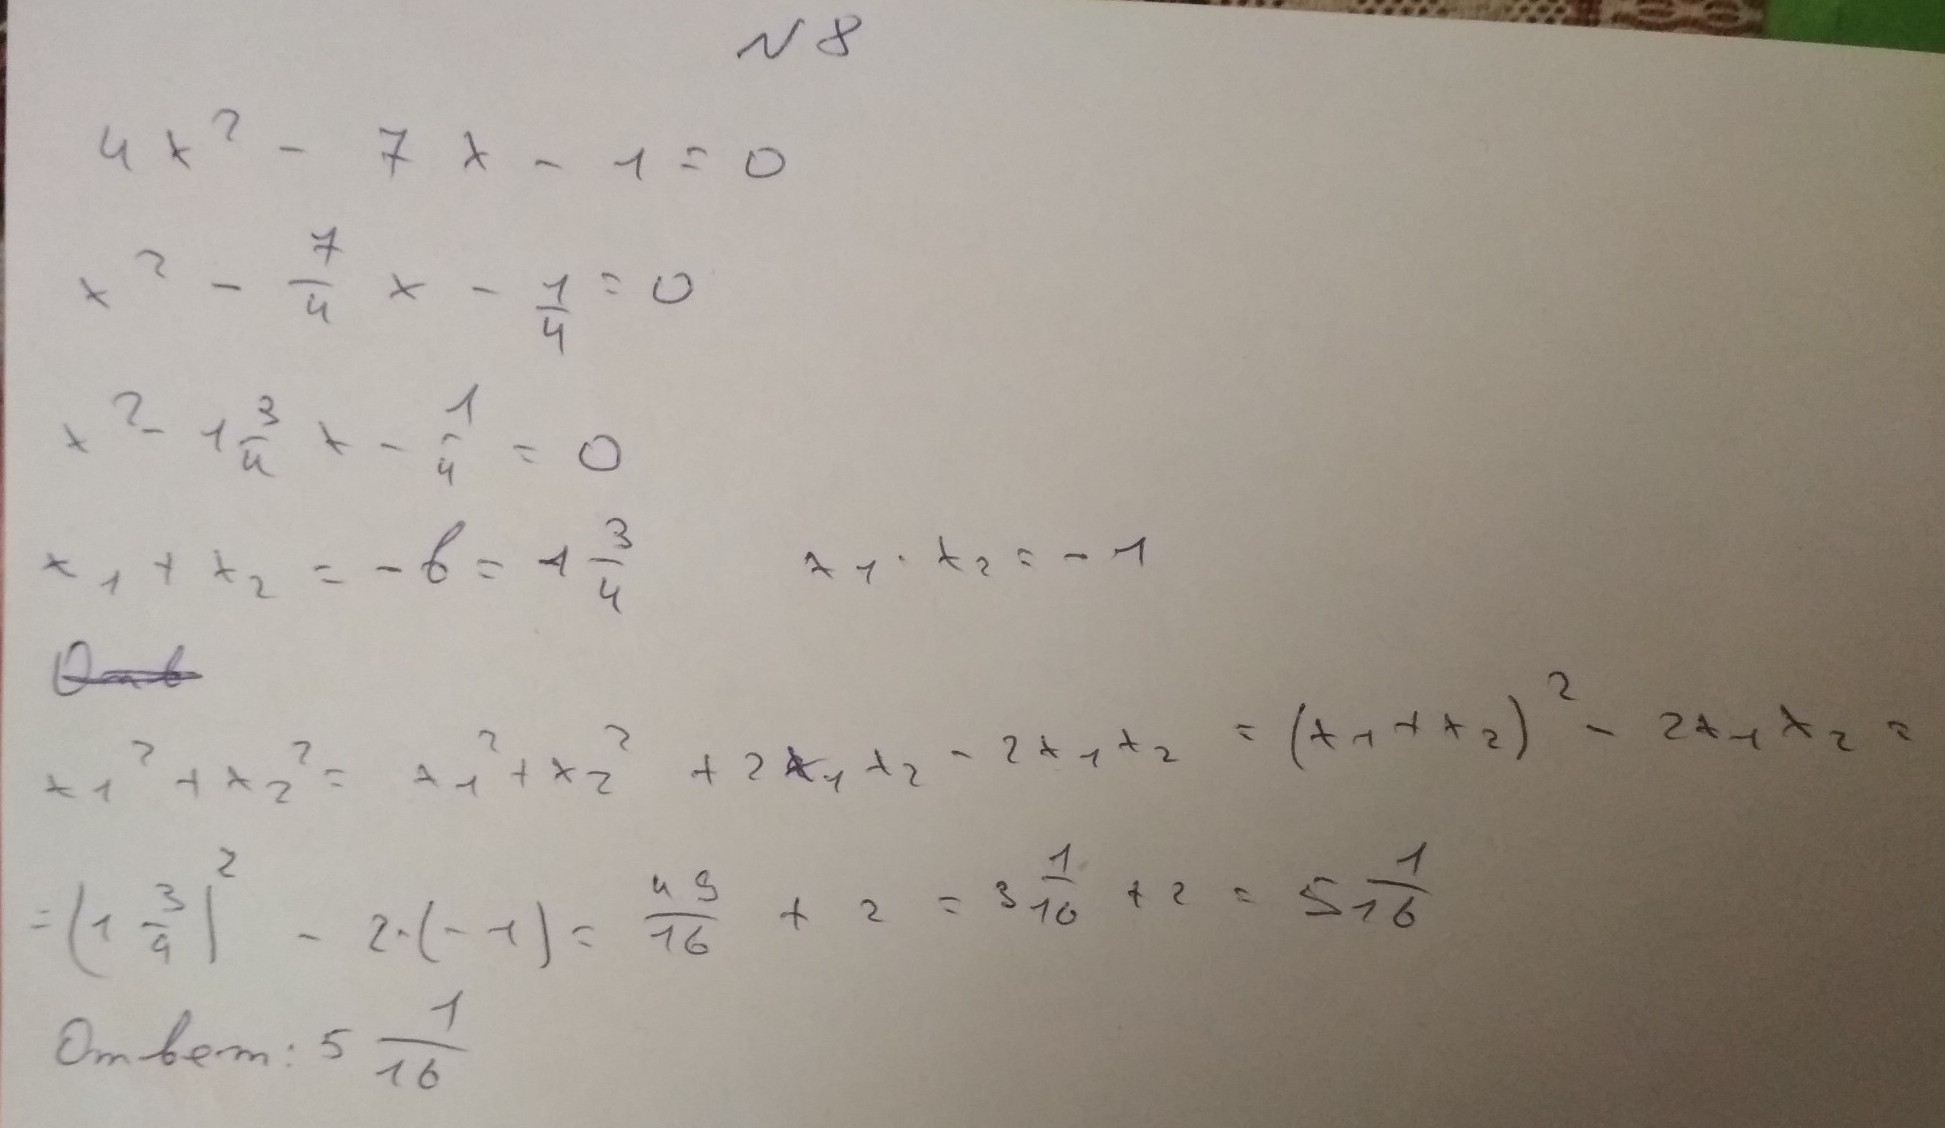 N 8
4x² - 7x - 1 = 0
x² - 7/4 x - 1/4 = 0
x² - 1 3/4 x - 1/4 = 0
x₁ + x₂ = -b = 1 3/4    x₁ · x₂ = -1
x₁² + x₂² = x₁² + x₂² + 2x₁x₂ - 2x₁x₂ = (x₁ + x₂)² - 2x₁x₂ =
= (1 3/4)² - 2·(-1) = 49/16 + 2 = 3 1/16 + 2 = 5 1/16
Ответ: 5 1/16